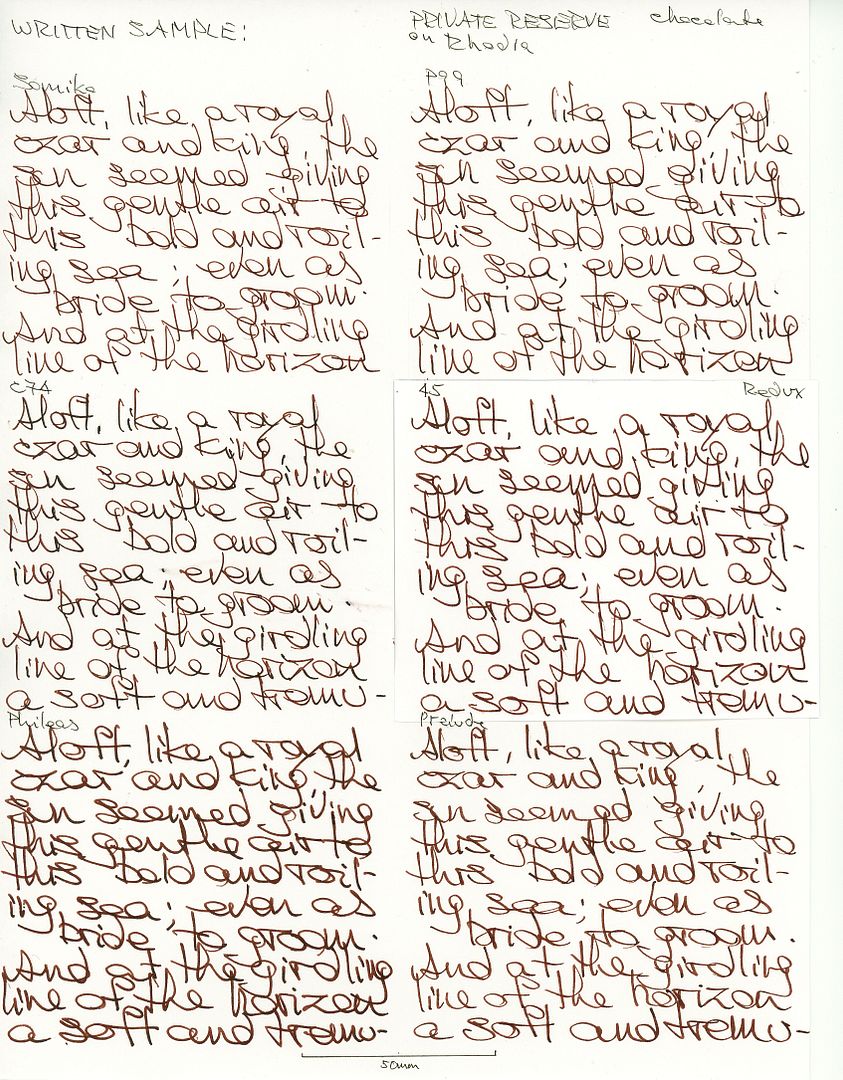 WRITTEN SAMPLE:
PRIVATE RESERVE chocolate
on Rhodia
Somiko
Aloft, like a royal
czar and king, the
sun seemed giving
this gentle air to
this bold and roil-
ing sea; even as
bride to groom.
And at the girdling
line of the horizon
P99
Aloft, like a royal
czar and king, the
sun seemed giving
this gentle air to
this bold and roil-
ing sea; even as
bride to groom.
And at the girdling
line of the horizon
C74
Aloft, like a royal
czar and king, the
sun seemed giving
this gentle air to
this bold and roil-
ing sea; even as
bride to groom.
And at the girdling
line of the horizon
a soft and tremu-
45 Redux
Aloft, like a royal
czar and king, the
sun seemed giving
this gentle air to
this bold and roil-
ing sea; even as
bride to groom.
And at the girdling
line of the horizon
a soft and tremu-
Phileas
Aloft, like a royal
czar and king, the
sun seemed giving
this gentle air to
this bold and roil-
ing sea; even as
bride to groom.
And at the girdling
line of the horizon
a soft and tremu-
Prelude
Aloft, like a royal
czar and king, the
sun seemed giving
this gentle air to
this bold and roil-
ing sea; even as
bride to groom.
And at the girdling
line of the horizon
a soft and tremu-
50mm